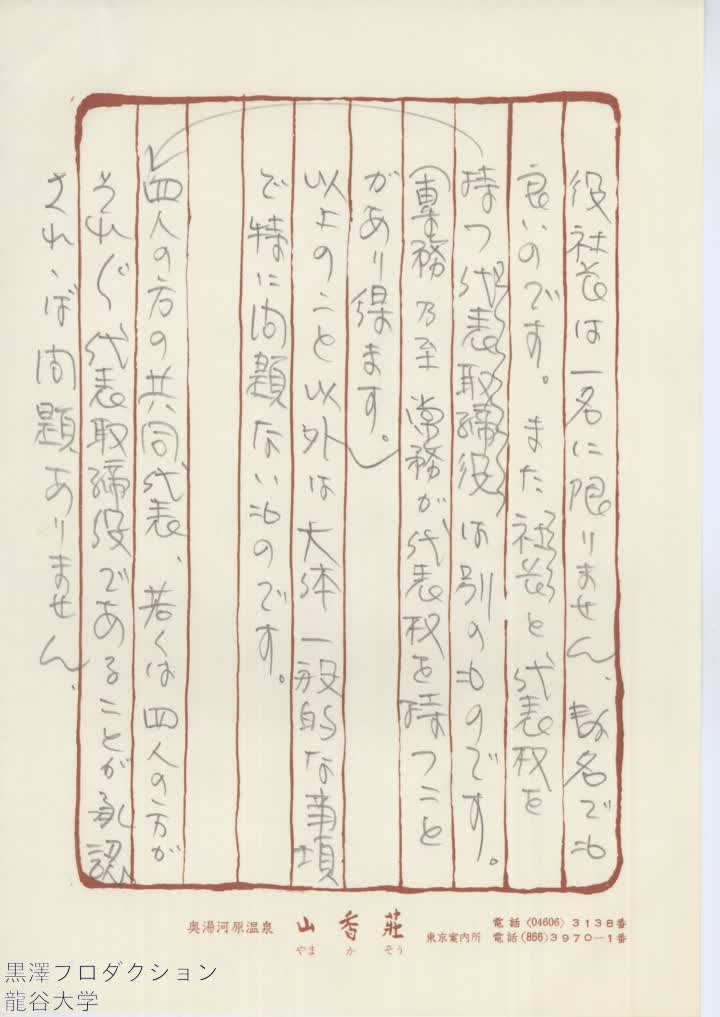 役社長は一名に限りません、数名でも
良いのです。また社長と代表权を
持つ代表取締役は別のものです。
(専務乃至常務が代表权を持つこと
があり得ます。)
以上のこと以外は大体一般的な事項
で特に问題ないものです。
四人の方の共同代表、若くは四人の方が
それぞれ代表取締役であることが承認
されゝば问題ありません、
奥湯河原温泉 山香荘 電話〈04606〉3138番
やまかそう 東京案内所 電話(866)3970-1番
黒澤プロダクション
龍谷大学